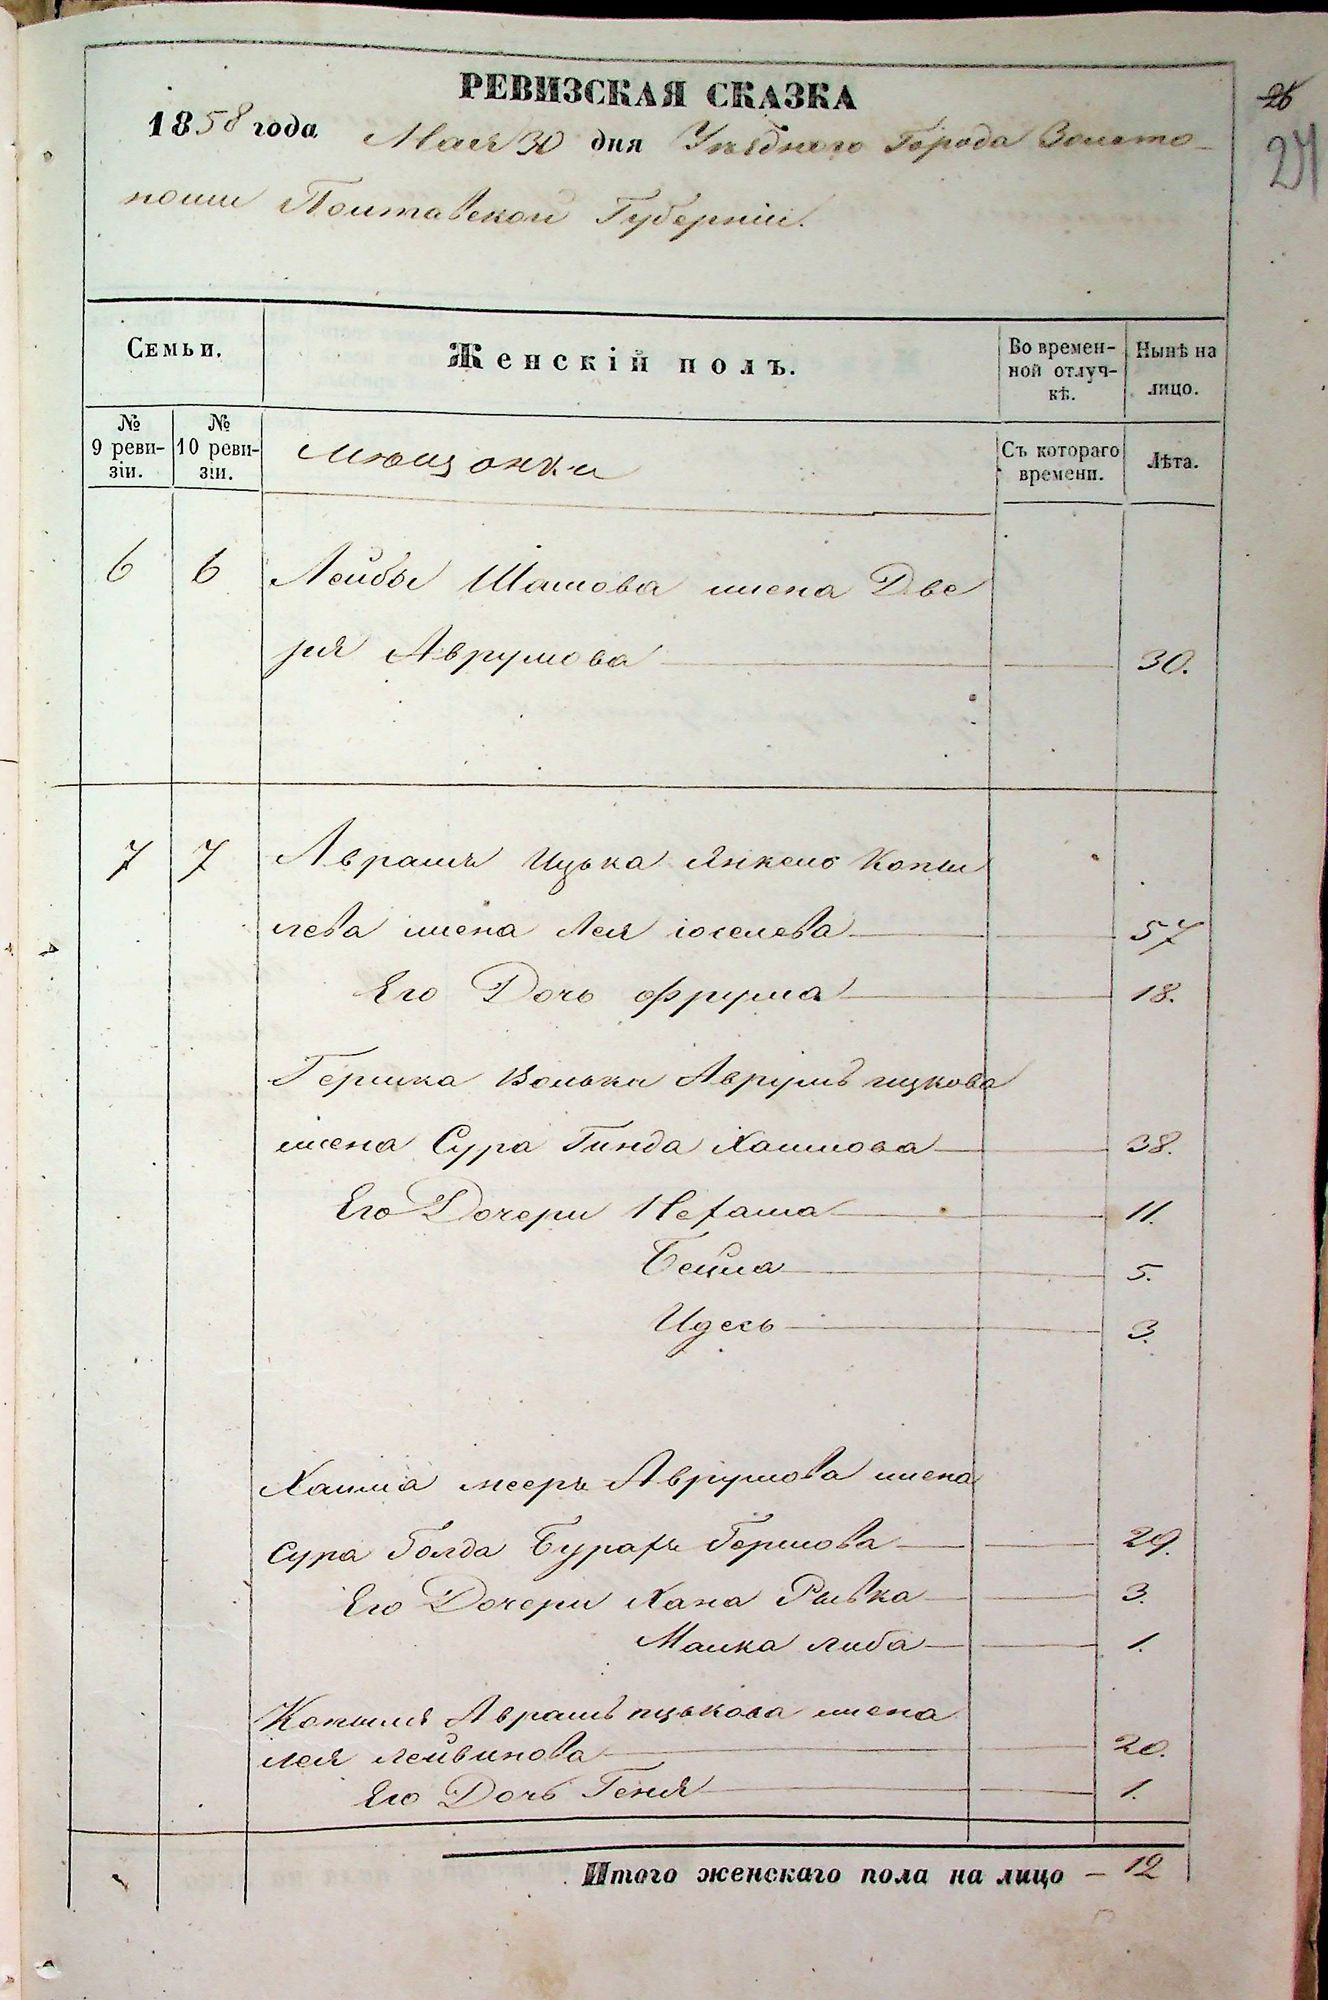 РЕВИЗСКАЯ СКАЗКА
26
27
1858 года Мая 30 дня Уѣзднаго Города Золото-
ноши Полтавской Губерніи.
Семьи.
Женскій полъ.
Во времен-
ной отлуч-
кѣ.
Нынѣ на
лицо.
№
9 реви-
зіи.
№
10 реви-
зіи.
Мѣщанки
Съ котораго
времени.
Лѣта.
6 6 Лейбы Шамова жена Две
ря Аврумова 30.
7 7 Аврамъ Ицька Янкело Копы
лева жена Лея Іоселева 57
Его Дочь Фрума 18.
Гершка Волька Аврумъ Ицкова
жена Сура Гинда Хаимова 38.
Его Дочери Нехама 11.
Бейла 5.
Идесь 3.
Хаима Мееръ Аврумова жена
Сура Голда Бурахъ Гершова 29.
Его Дочери Хана Рывка 3.
Малка Либа 1.
Копыля Аврамъ Ицькова жена
Лея Лейвикова 20.
Его Дочь Геня 1.
Итого женскаго пола на лицо – 12